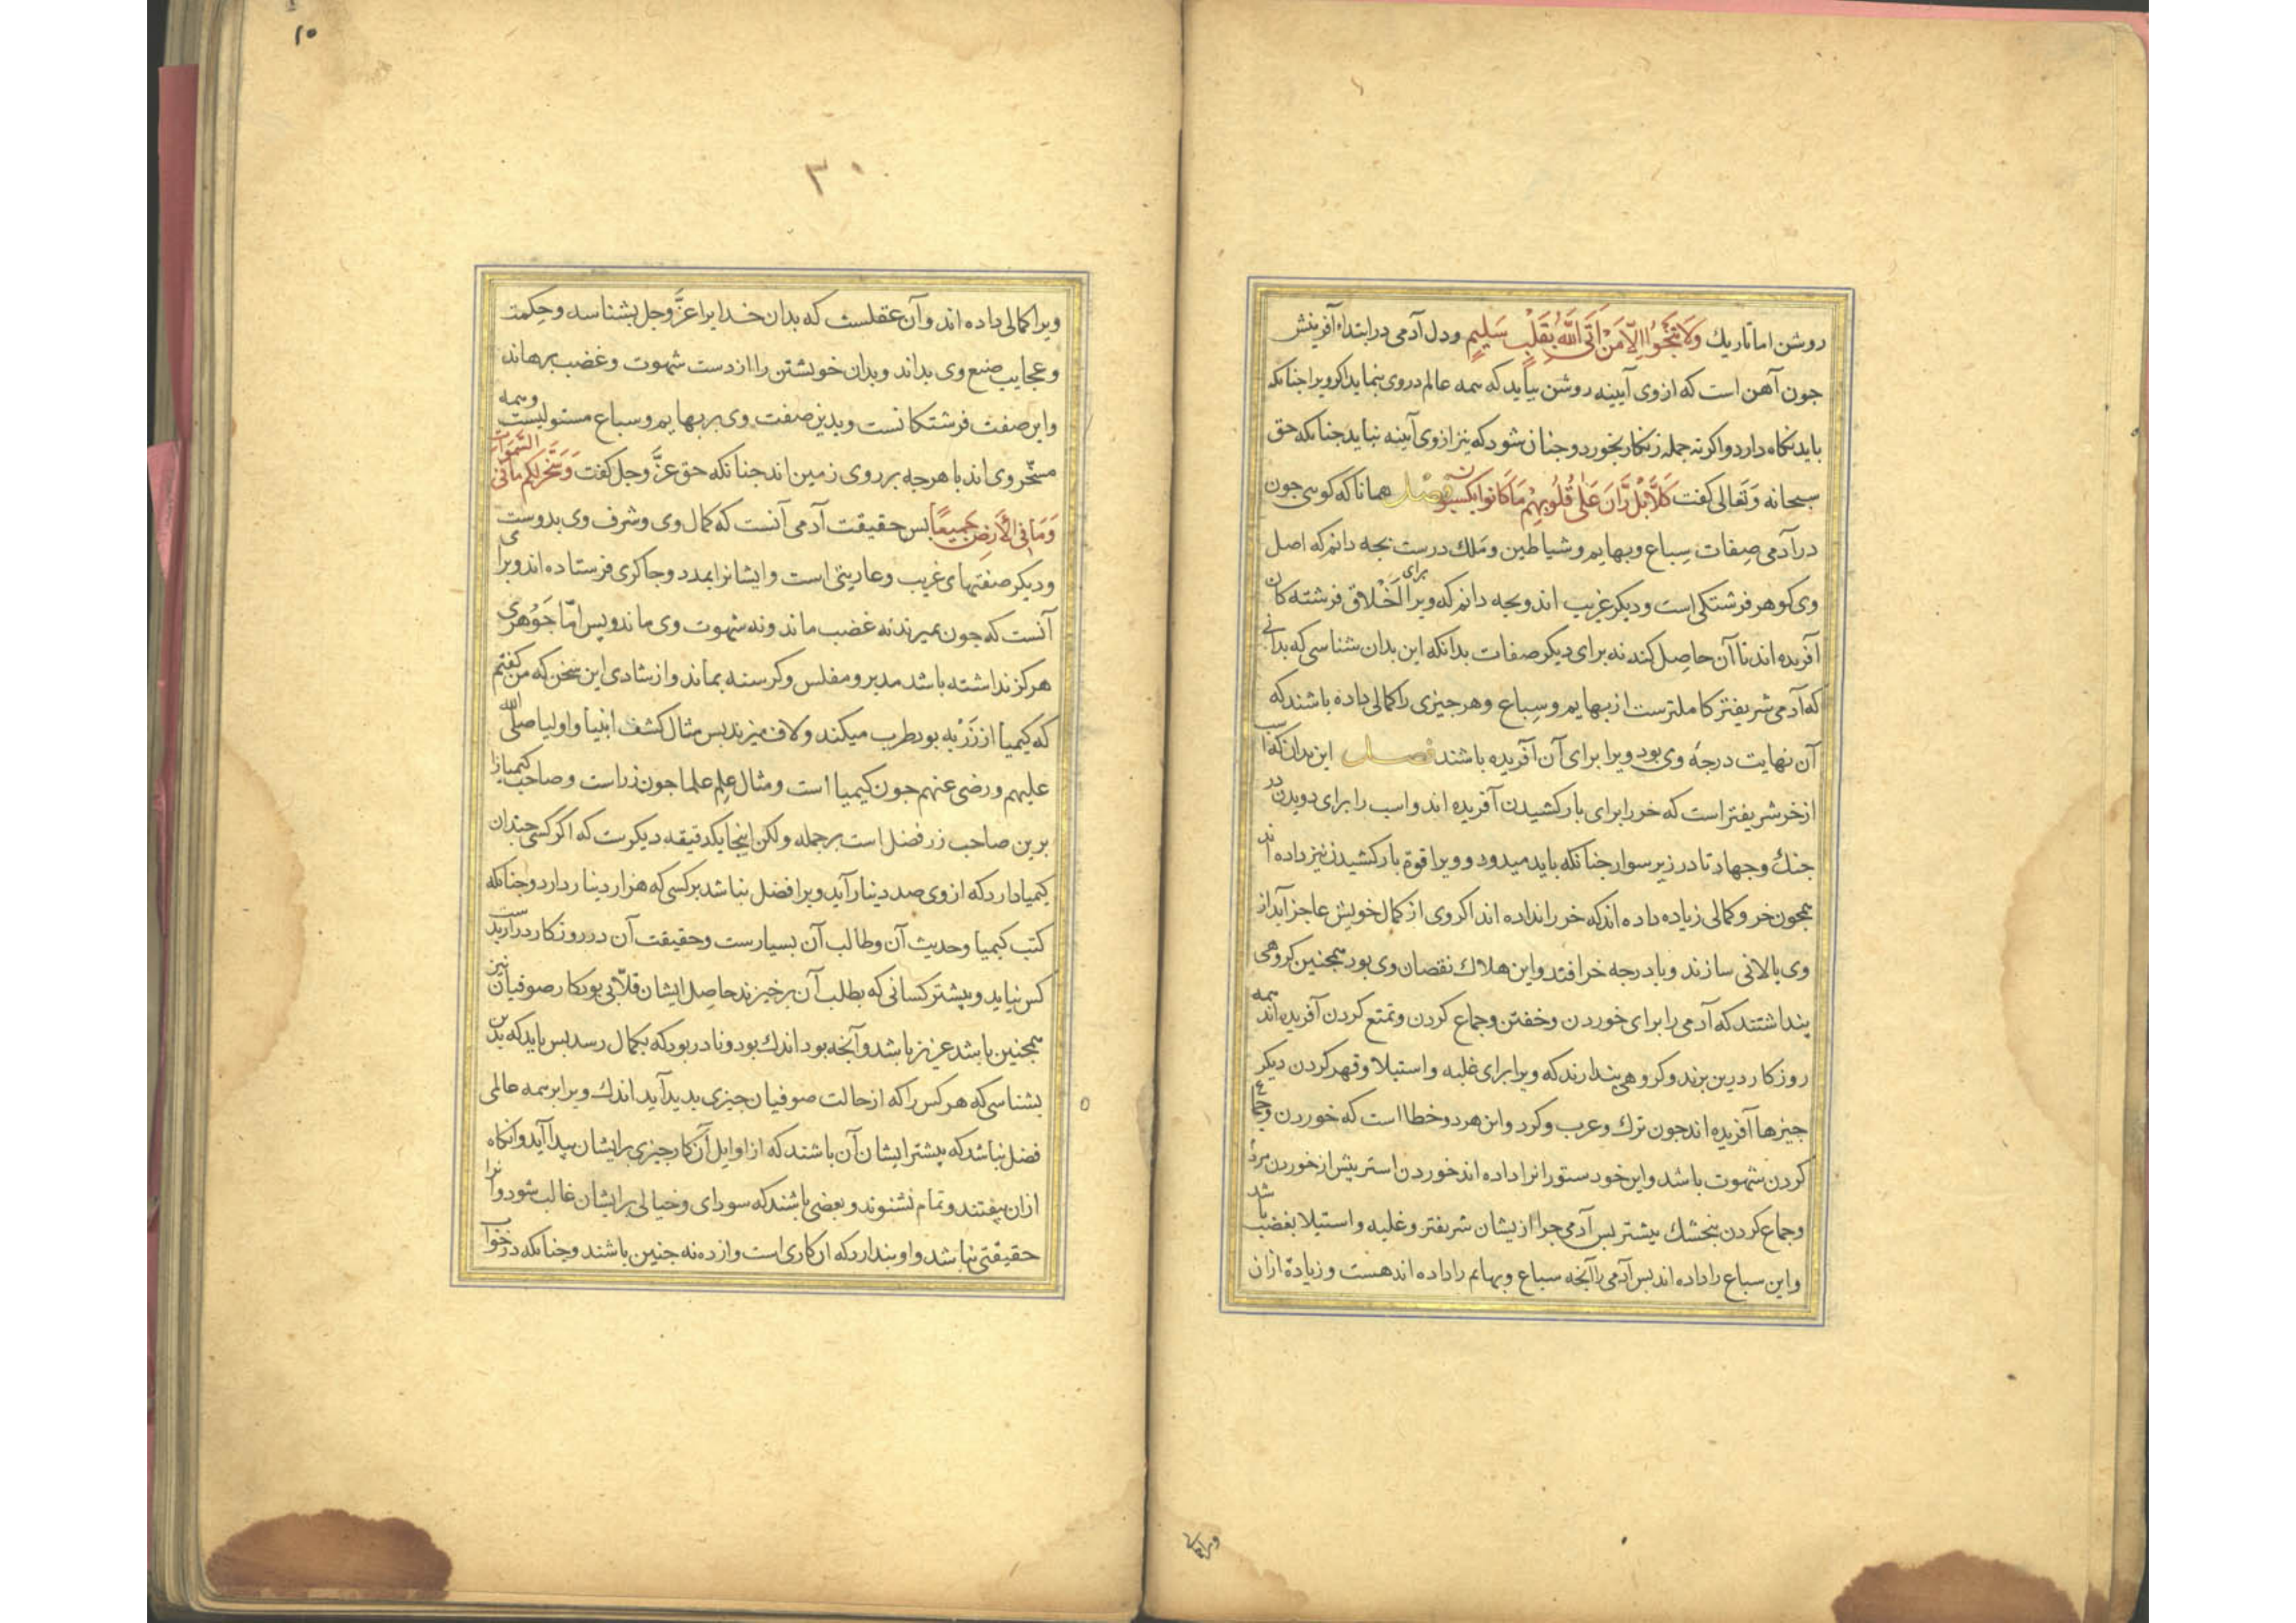 روشن اما تاریك وَلَا یَنْجُوا اِلَّا مَنْ اَتَی اللّٰهَ بِقَلْبٍ سَلِیمٍ و دل آدمی در ابتداء آفرینش
جون آهن است که از وی آیینه روشن بیاید که همه عالم در وی بنماید اکر ویرا جنانکه
باید نکاه دارد و اکرنه جمله زنکار بخورد و جنان شود که نیز از وی آیینه نیاید جنانکه حق
سبحانه وَتَعالی کفت کَلَّا بَلْ رَانَ عَلٰی قُلُوبِهِمْ مَا کَانُوا یَکْسِبُونَ فصل همانا که کویی جون
در آدمی صِفات سِباع وبهایم و شیاطین و مَلك درست بجه دانم که اصل
وی کوهر فرشتکی است و دیکر غریب اند و بجه دانم که ویرا برای اَخْلاق فرشته کان
آفریده اند تا آن حاصِل کند نه برای دیکر صفات بدانکه این بدان شناسی که بدانی
که آدمی شریفتر کاملترست از بهایم و سِباع و هر جیزی را کمالی داده باشند که
آن نهایت درجهٔ وی بود ویرا برای آن آفریده باشند فصل این بدان که اسب
از خر شریفتر است که خر را برای بار کشیدن آفریده اند و اسب را برای دویدن در
جنك و جهاد تا در زیر سوار جنانکه باید میدود و ویرا قوة بار کشیدن نیز داده اند
همجون خر و کمالی زیاده داده اند که خر را نداده اند اکر وی از کمال خویش عاجز آید از
وی پالانی سازند و با درجه خر افتد و این هلاك نقصان وی بود همجنین کروهی
پنداشتند که آدمی را برای خوردن و خفتن و جماع کردن و تمتع کردن آفریده اند همه
روزکار درین برند و کروهی پندارند که ویرا برای غلبه و استیلا و قهر کردن دیکر
جیزها آفریده اند جون ترك و عرب و کرد و این هر دو خطا است که خوردن و جماع
کردن شهوت باشد و این خود ستورانرا داده اند خوردن استر بیش از خوردن مرد
و جماع کردن بنجشك بیشتر بس آدمی جرا از یشان شریفتر و غلبه و استیلا بغضب باشد
و این سباع را داده اند بس آدمی را آنجه سباع و بهایم را داده اند هست و زیادة ازان
ویرا کمالی
۱۵
۳۰
ویرا کمالی داده اند و آن عقلست که بدان خدایرا عزَّ وجل بشناسد و حِکمت
و عجایب صنع وی بداند و بدان خویشتن را از دست شهوت و غضب برهاند
و این صفت فرشتکانست و بدین صفت وی بر بهایم و سباع مستولیست و همه
مسخّر وی اند با هرجه بر روی زمین اند جنانکه حق عزَّ وجل کفت وَسَخَّرَ لَکُم مَا فِی السَّمٰوَاتِ
وَمَا فِی الْأَرْضِ جَمِیعًا بس حقیقت آدمی آنست که کمال وی و شرف وی بدوست
و دیکر صفتهای غریب و عاریتی است و ایشانرا بمدد و جاکری فرستاده اند و برای
آنست که جون بمیرند نه غضب ماند و نه شهوت وی ماند و بس امّا جَوْهری
هرکز نداشته باشد مدبر و مفلس و کرسنه بماند و از شادی این سخن که من کفتم
که کیمیا از زَرْ به بود طرب میکند و لاف میزند بس مثال کشف انبیا و اولیا صلی اللّه
علیهم و رضی عنهم جون کیمیا است و مثال علِم علما جون زر است و صاحب کیمیا را
برین صاحب زر فضل است بر جمله و لکن اینجا یکدقیقه دیکرست که اکر کسی جندان
کیمیا دارد که از وی صد دینار آید ویرا افضل نباشد بر کسی که هزار دینار دارد و جنانکه
کتب کیمیا و حدیث آن و طالب آن بسیارست و حقیقت آن در روزکار دراز بدست
کس نیاید و بیشتر کسانی که بطلب آن برخیزند حاصِل ایشان قلّابی بود کار صوفیان نیز
همجنین باشد عزیز باشد و آنجه بود اندك بود و نادر بود که بکمال رسد بس باید که بدین
بشناسی که هر کس را که از حالت صوفیان جیزی بدید آید اندك ویرا بر همه عالمی
فضل نباشد که بیشتر ایشان آن باشند که از اوایل آن کار جیزی بر ایشان پیدا آید و آنکاه
ازان بیفتند و تمام نشنوند و بعضی باشند که سودای و خیالی بر ایشان غالب شود و آنرا
حقیقتی نباشد و او پندارد که آن کاری است و از ده نه جنین باشند و جنانکه در خواب